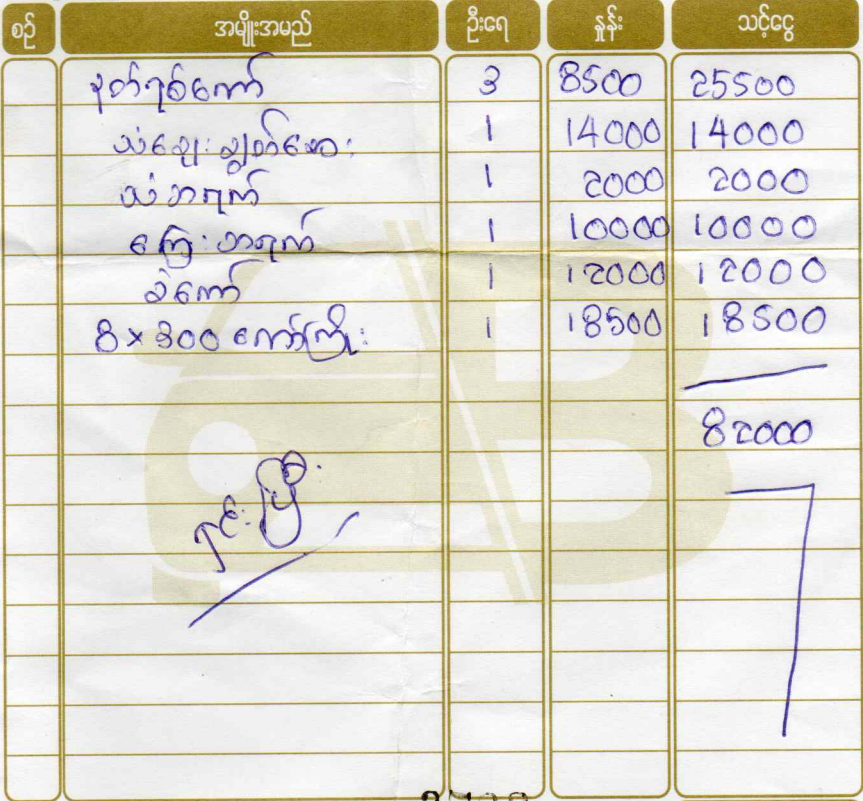 စဉ် အမျိုးအမည် ဦးရေ နှုန်း သင့်ငွေ
နတ်ရစ်ကော် 3 8500 25500
သံချေးချွတ်ဆေး 1 14000 14000
သံဘရက် 1 2000 2000
ကြေးဘရက် 1 10000 10000
ခဲကော် 1 12000 12000
8 × 300 ကော်ကြိုး 1 18500 18500
82000
ရှင်းပြီး